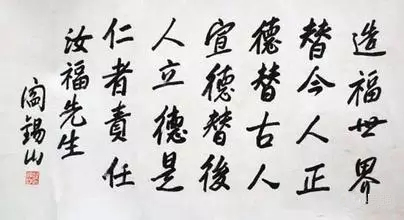 造福世界
替今人正
德替古人
宣德替後
人立德是
仁者責任
汝福先生
阎錫山